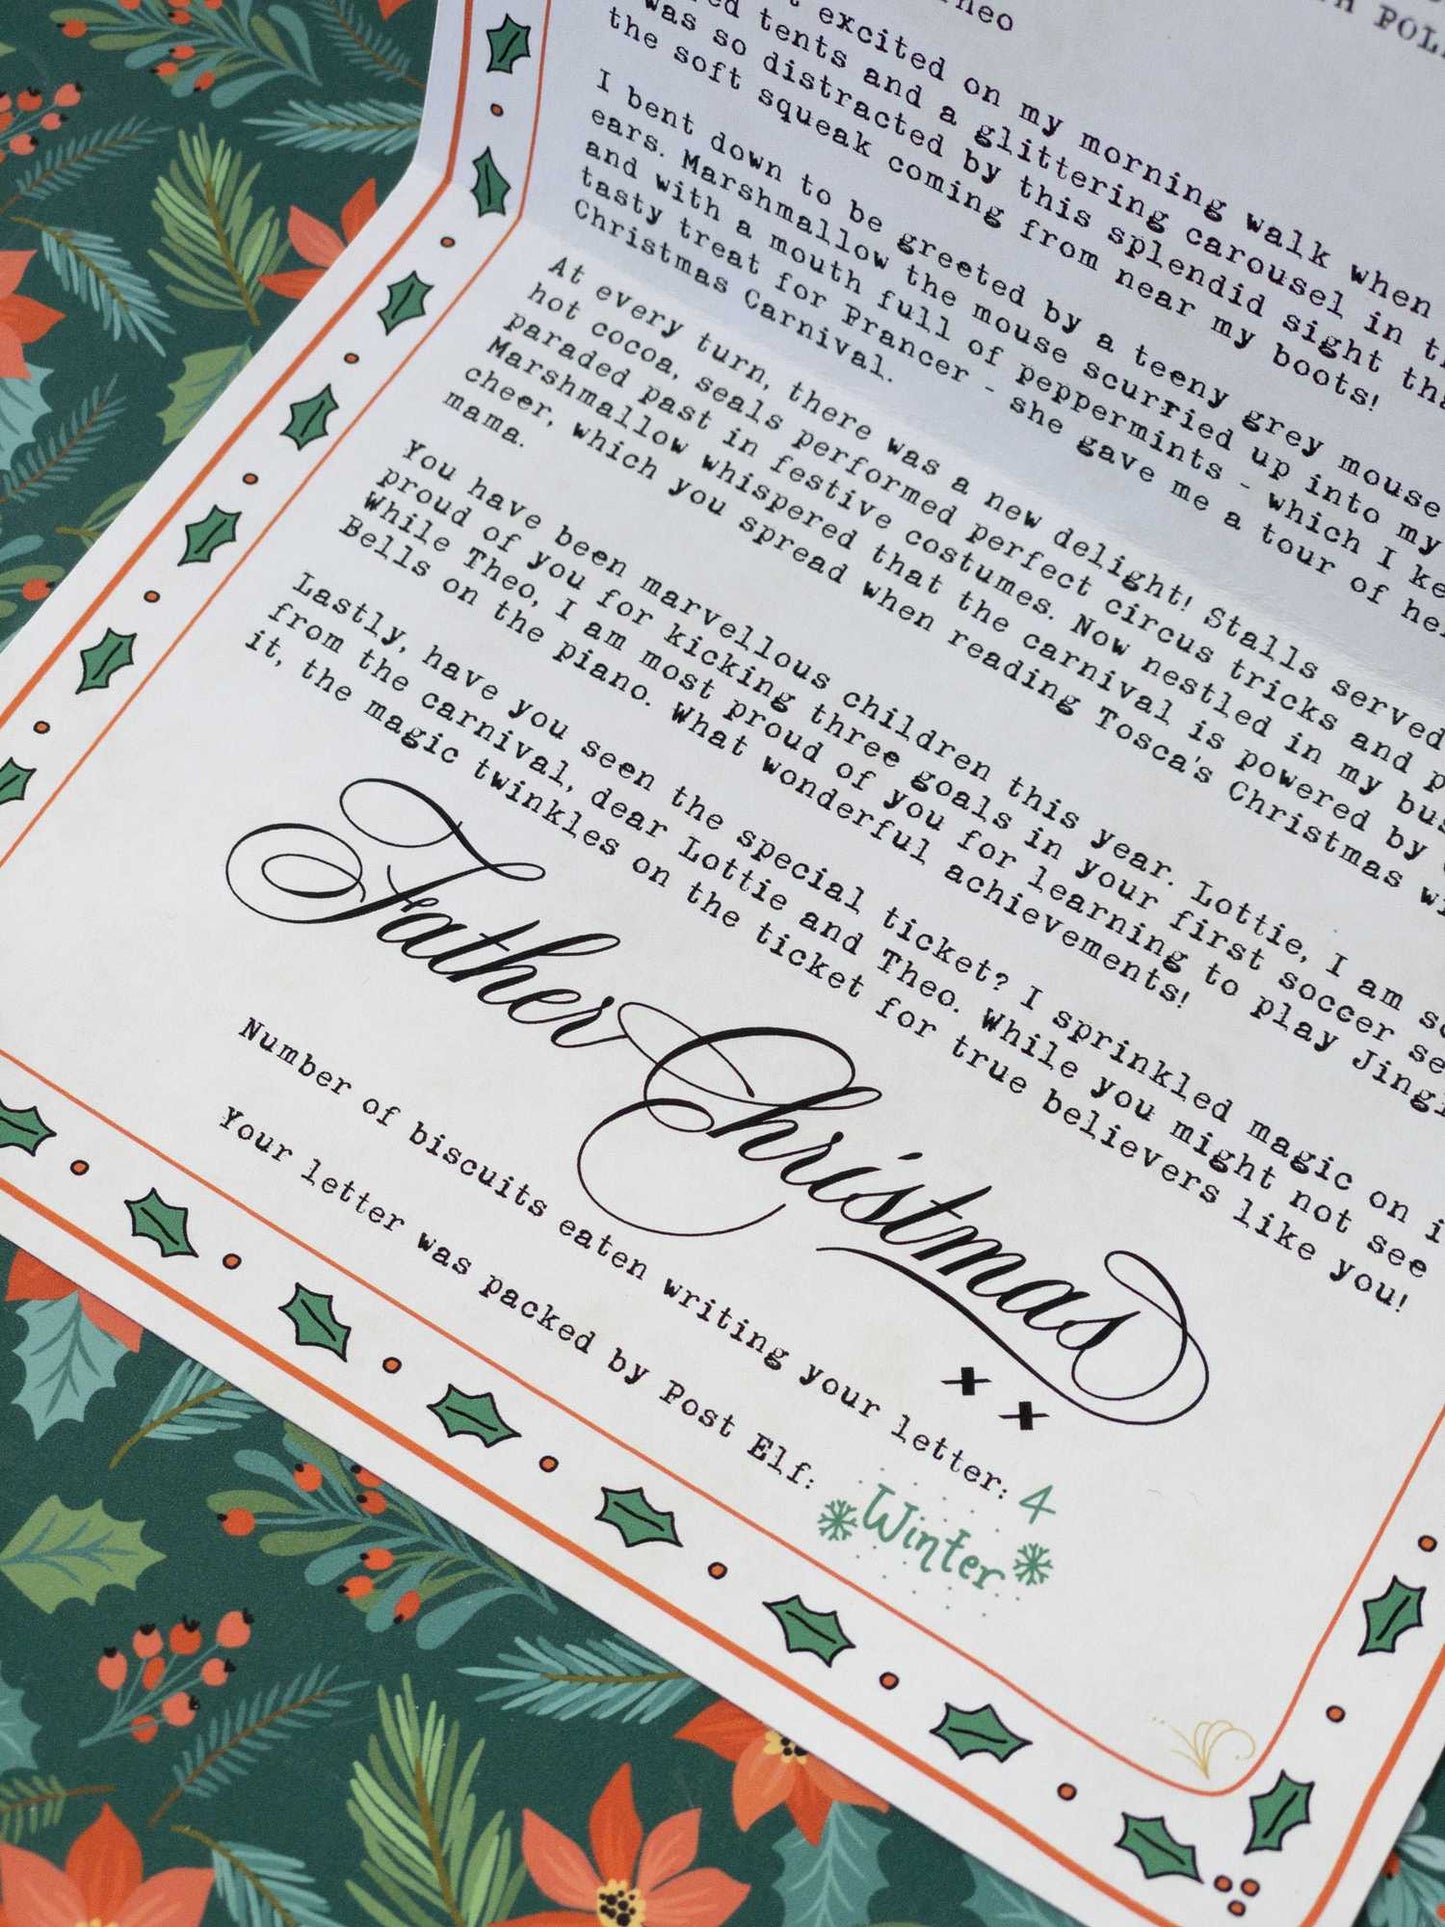 TH POL
heo
t excited on my morning walk when
ed tents and a glittering carousel in th
was so distracted by this splendid sight tha
the soft squeak coming from near my boots!
I bent down to be greeted by a teeny grey mouse
ears. Marshmallow the mouse scurried up into my
and with a mouth full of peppermints - which I ke
tasty treat for Prancer - she gave me a tour of her
Christmas Carnival.
At every turn, there was a new delight! Stalls served
hot cocoa, seals performed perfect circus tricks and p
paraded past in festive costumes. Now nestled in my bus
Marshmallow whispered that the carnival is powered by
cheer, which you spread when reading Tosca's Christmas wi
mama.
You have been marvellous children this year. Lottie, I am so
proud of you for kicking three goals in your first soccer se
While Theo, I am most proud of you for learning to play Jingl
Bells on the piano. What wonderful achievements!
Lastly, have you seen the special ticket? I sprinkled magic on i
from the carnival, dear Lottie and Theo. While you might not see
it, the magic twinkles on the ticket for true believers like you!
Father Christmas
x x
Number of biscuits eaten writing your letter: 4
Your letter was packed by Post Elf: Winter